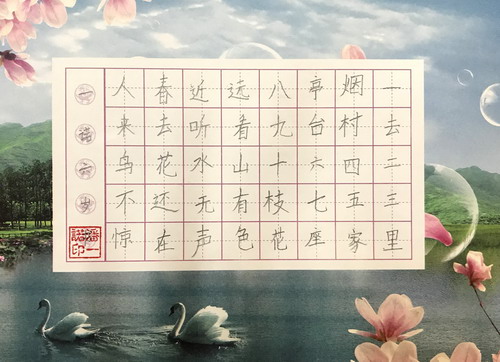 一去二三里
烟村四五家
亭台六七座
八九十枝花
远看山有色
近听水无声
春去花还在
人来鸟不惊
一诺六岁